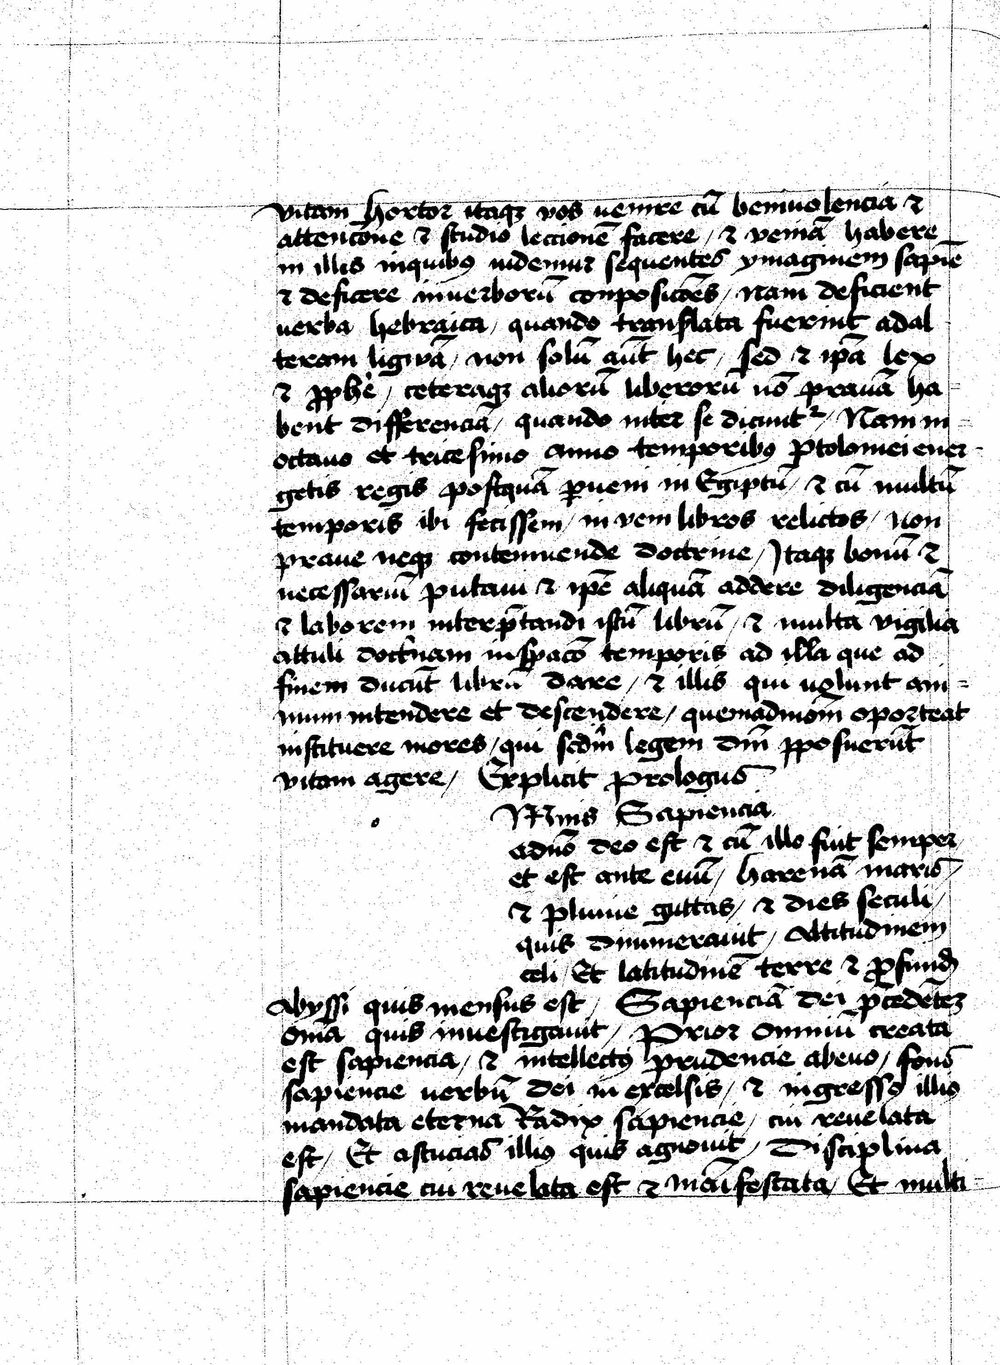 vitam Hortor itaqz vos uenire cū beniuolencia ⁊
attencōne ⁊ studio leccionē facere / ⁊ veniā habere
in illis inquibꝰ uidemur sequentes ymaginem sapiē
⁊ deficere inuerborū conposicōēs / Nam deficient
uerba hebraica / quando translata fuerint ad al
teram ligwā / non solū aūt hec / sed ⁊ ip̄a lex
⁊ ꝓphē / ceteraqz aliorū liberorū nō prauā ha=
bent differenciā / quando inter se dicūt² / Nam in=
octauo et tricesimo anno temporibꝰ Ptolomei euer=
getis regis postquā ꝑueni in Egiptū / ⁊ cū multū
temporis ibi fecissem / inveni libros relictos / non
praue neqz contemnende doctrine / Itaqz bonū ⁊
necessariū putaui ⁊ ip̄e aliquā addere diligenciā
⁊ laborem interp̄tandi istū librū / ⁊ multa vigilia
attuli doctrīnam inspacō temporis ad illa que ad
finem ducūt librū dare / ⁊ illis qui uolunt ani=
mum intendere et descendere / quemadmōm oporteat
instituere mores / qui scdm̄ legem dnī ꝓposuerūt
vitam agere / Explicit prologus
Mnis Sapiencia
adnō deo est ⁊ cū illo fuit semper /
et est ante euū / Harenā maris /
⁊ pluuie guttas / ⁊ dies seculi /
quis dinumerauit / Altitudinem
celi Et latitudinē terre ⁊ ꝓfund
Abyssi quis mensus est / Sapienciā dei p̄cedētez
om̄a quis inuestigauit / Prior omniū creata
est sapiencia / ⁊ intellectꝰ prudencie abeuo / fons
sapiencie uerbū dei in excelsis / ⁊ ingressꝰ illiꝰ
mandata eterna Radix sapiencie / cui reuelata
est / Et astucias illiꝰ quis agnouit / Disciplina
sapiencie cui reuelata est ⁊ māifestata / Et multi=